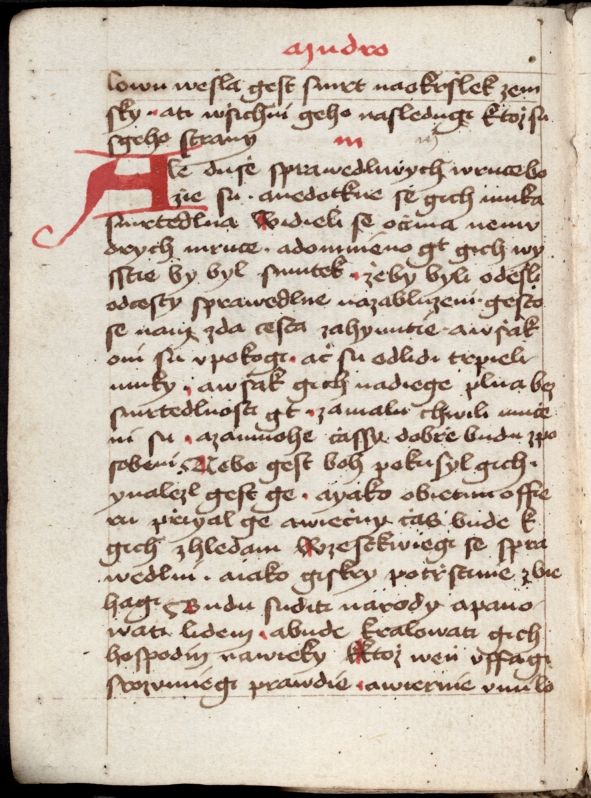 Mudro
lowu wesla gest smrt naokrslek zem
sky · ati wsichni geho nasledugi ktoz su
sgeho strany
III
Ale duse sprawedlnych wruce bo
zie su · anedotkne se gich muka
smrtedlna Widieli se ocima nemu
drych mruce · adomneno gt gich wy
sstie by byl smutek · zeby byli odesli
odcesty sprawedlne nazabluzeni · gesto
se nam zda cesta zahynutie · awsak
oni su vpokogi · ac su odlidi trpieli
muky · awsak gich nadiege plna bez
smrtedlnosti gt · zamalu chwili muce
ni su · azamnohe cassy dobre budu zpo
sobeni Nebo gest boh pokusyl gich ·
ynalezl gest ge · ayako obietnu offie
ru priyal ge awiecny cas bude k
gich zhledani Wzestkwiegi se spra
wedlni · aiako giskry potrstinie zbie
hagi Budu suditi narody apano
wati lidem · abude kralowati gich
hospodin nawieky Ktoz wen vffagi
srozumiegi prawdie · awiernie vmilo